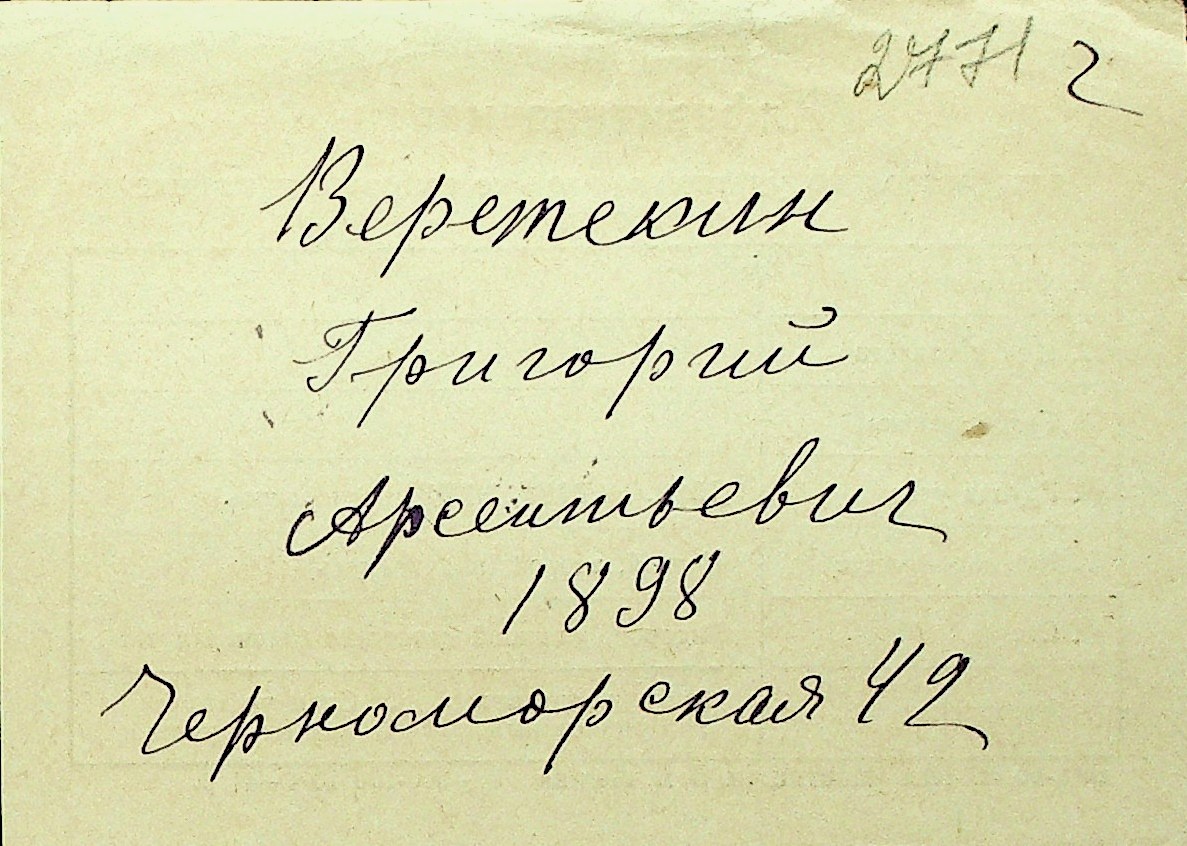 2771 2
Веретекин
Григорий
Арсентьевич
1898
Черноморская 42